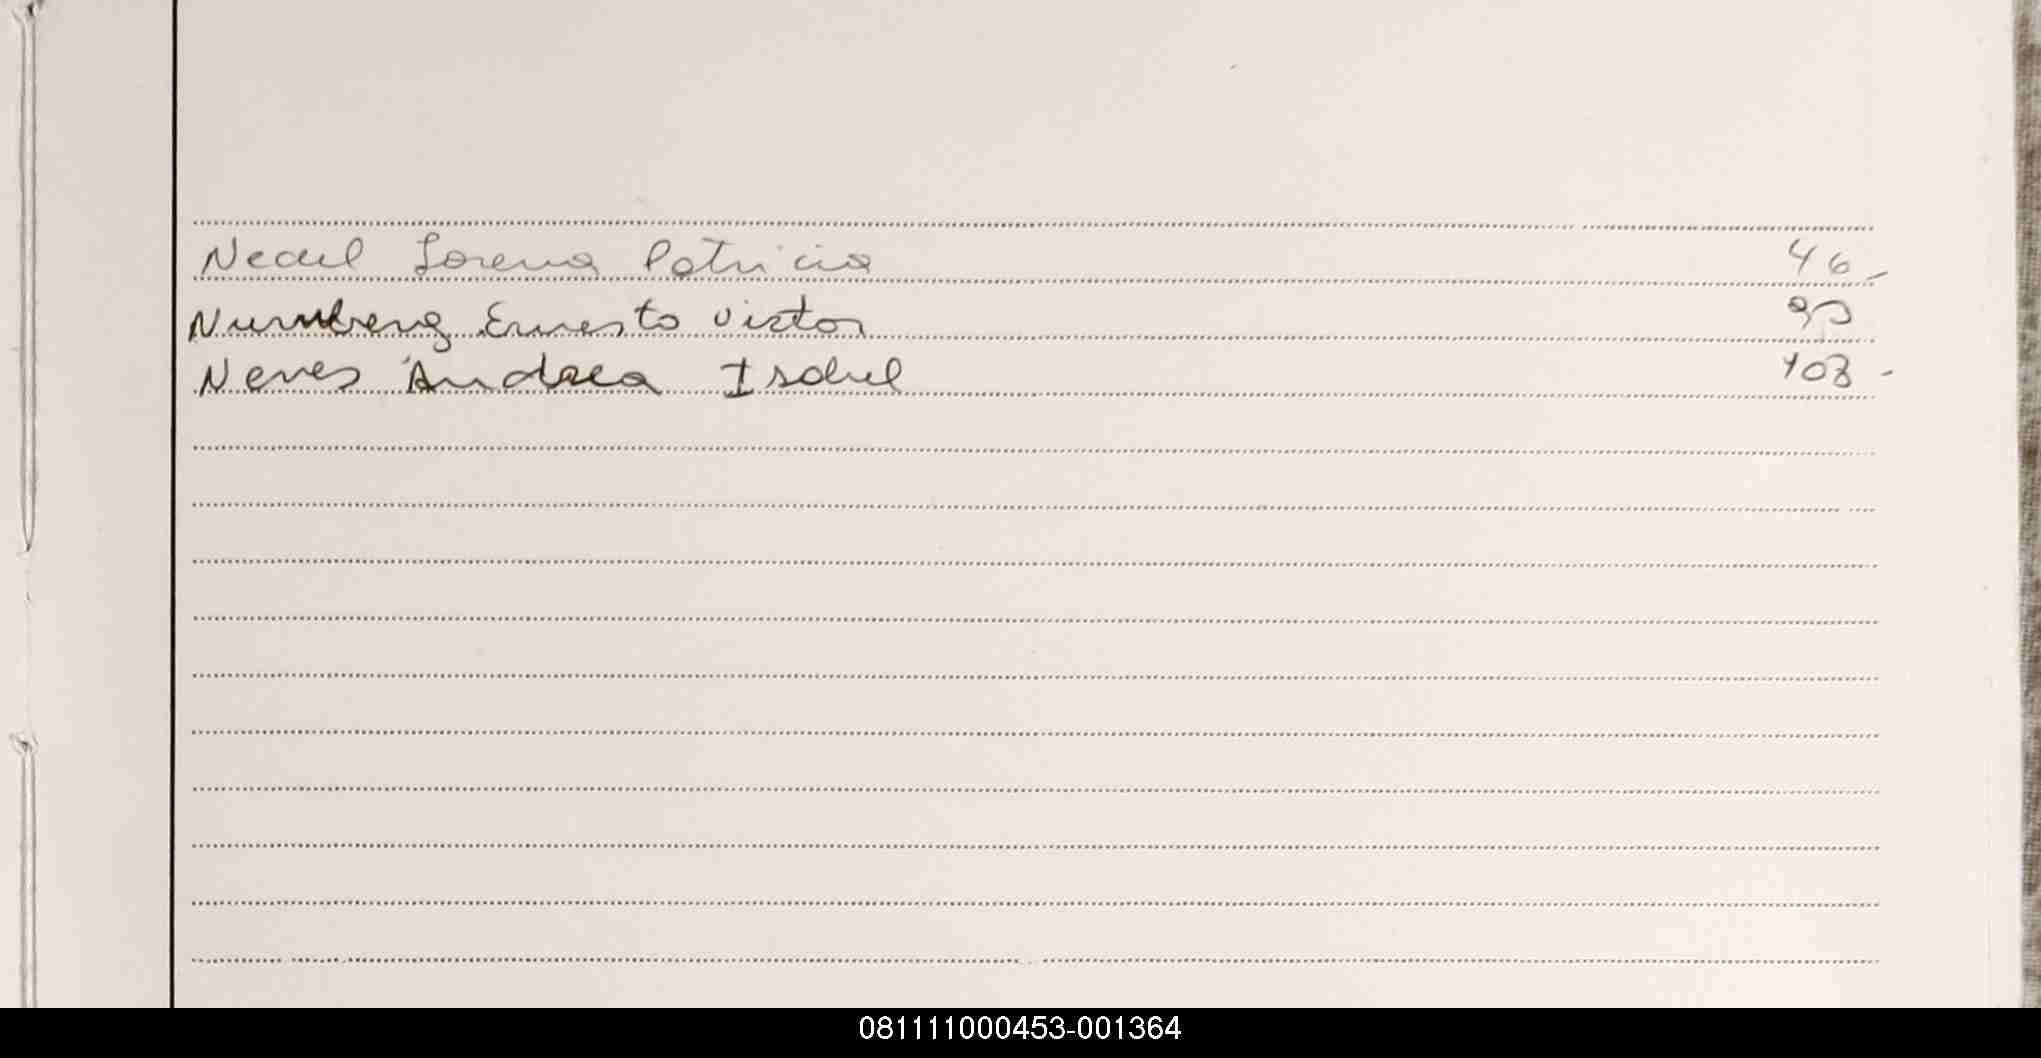 Nedel Lorena Patricia 46-
Nurnberg Ernesto Victor
Neves Andrea Isabel 103-
081111000453-001364